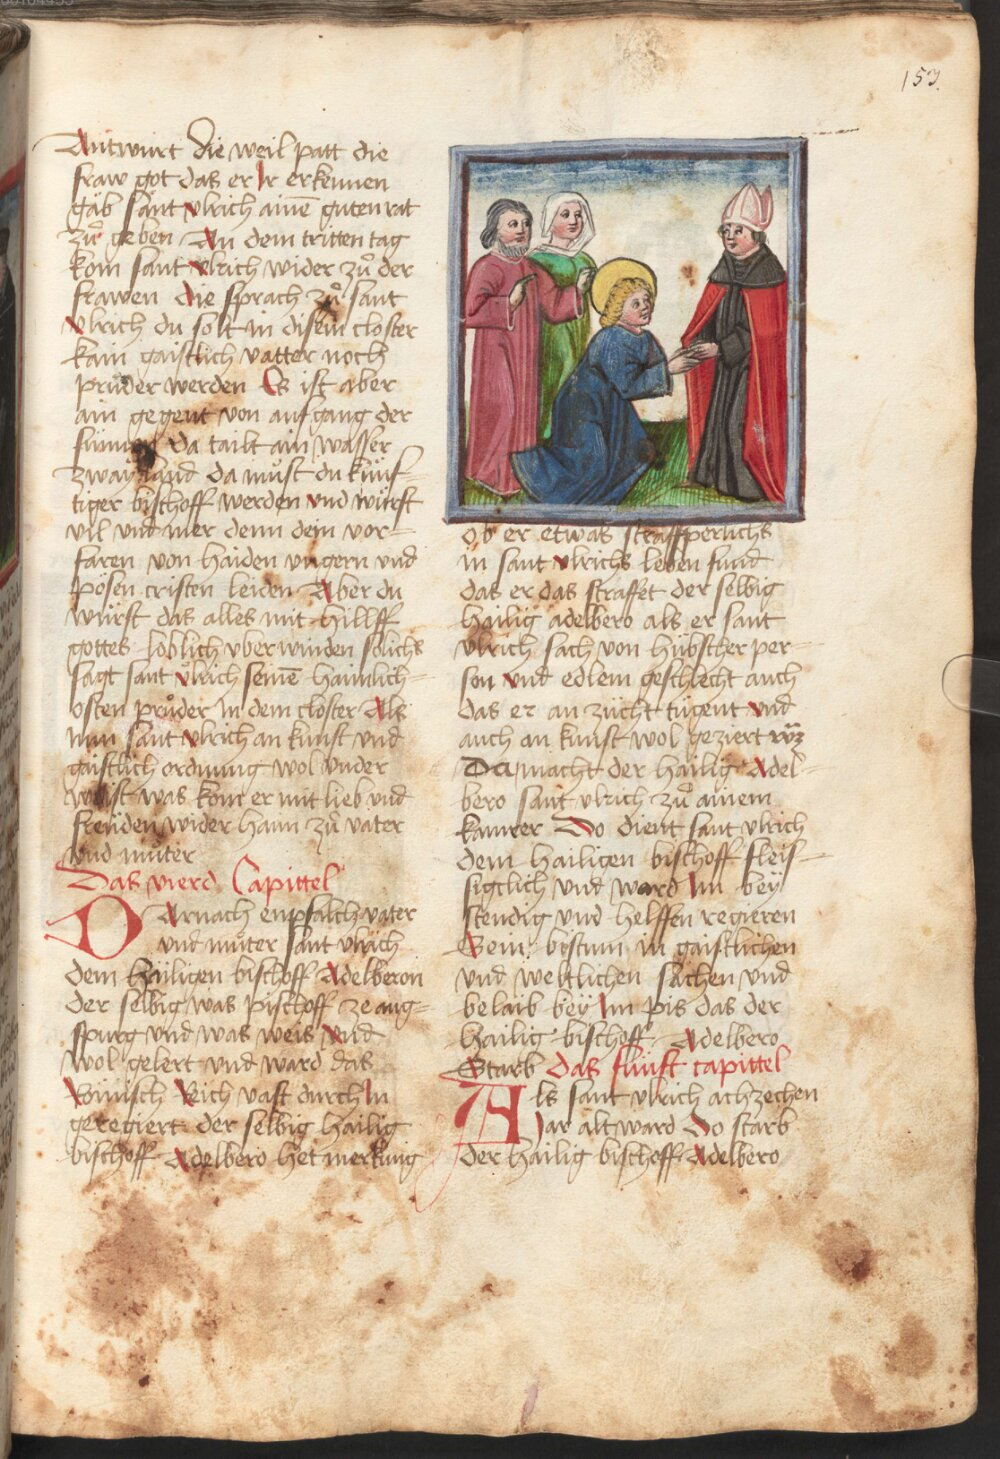 153
Antwurt die weil patt die
fraw got das er Ir erkennen
gäb sant vlrich aine᷄ guten rat
zů geben An dem tritten tag
kom sant vlrich wider zů der
frawen die sprach zů sant
vlrich du solt in disem closter
kain gaistlich vatter noch
průder werden Es ist aber
ain gegent von auf gang der
da tailt ain wasser
zway land da můst du künf-
tiger bischoff werden vnd würst
vil vnd mer denn dein vor-
faren von haiden vngern vnd
pösen cristen leiden Aber du
würst das alles mit hillff
gottes loblich vberwinden solichs
sagt sant vlrich seine᷄ haimlich-
osten průder In dem closter Als
nun sant vlrich an kunst vnd
gaistlich ordnung wol vnder
weist was kom er mit lieb vnd
freüden wider haim zů vater
vnd můter
Das vierd Capittel
Darnach enpfalch vater
vnd můter sant vlrich
dem hailigen bischoff Adelberon
der selbig was pischoff ze aug-
spurg vnd was weis vnd
wol gelert vnd ward das
Römisch Reich vast durch In
geregiert der selbig hailig
bischoff Adelbero het merkung
ob er etwas straffperlichs
in sant vlrichs leben fund
das er das straffet der selbig
hailig adelbero als er sant
vlrich sach von hübscher per-
son vnd edlem geschlecht auch
das er an zücht tugent vnd
auch an kunst wol geziert
Da macht der hailig Adel-
bero sant vlrich zů ainem
kamrer Do dient sant vlrich
dem hailigen bischoff fleis-
sigclich vnd ward Im bey
stendig vnd helffen regieren
Sein bistum in gaistlichen
vnd weltlichen sachen vnd
belaib bey Im pis das der
hailig bischoff Adelbero
Starb Das fünft capittel
Als sant vlrich achzechen
Jar alt ward Do starb
der hailig bischoff Adelbero